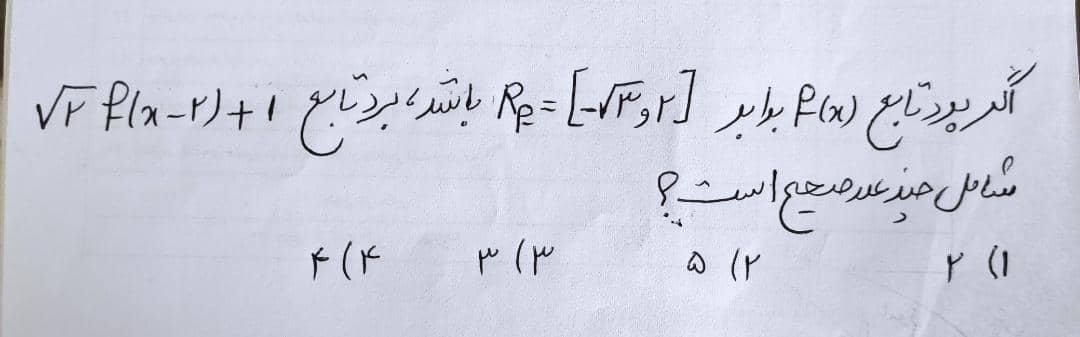 اگر برد تابع f(x) برابر R_f = [-√۳ و ۲] باشد، برد تابع √۲ f(x-۲)+۱
شامل چند عدد صحیح است؟
۱) ۲ ۲) ۵ ۳) ۳ ۴) ۴